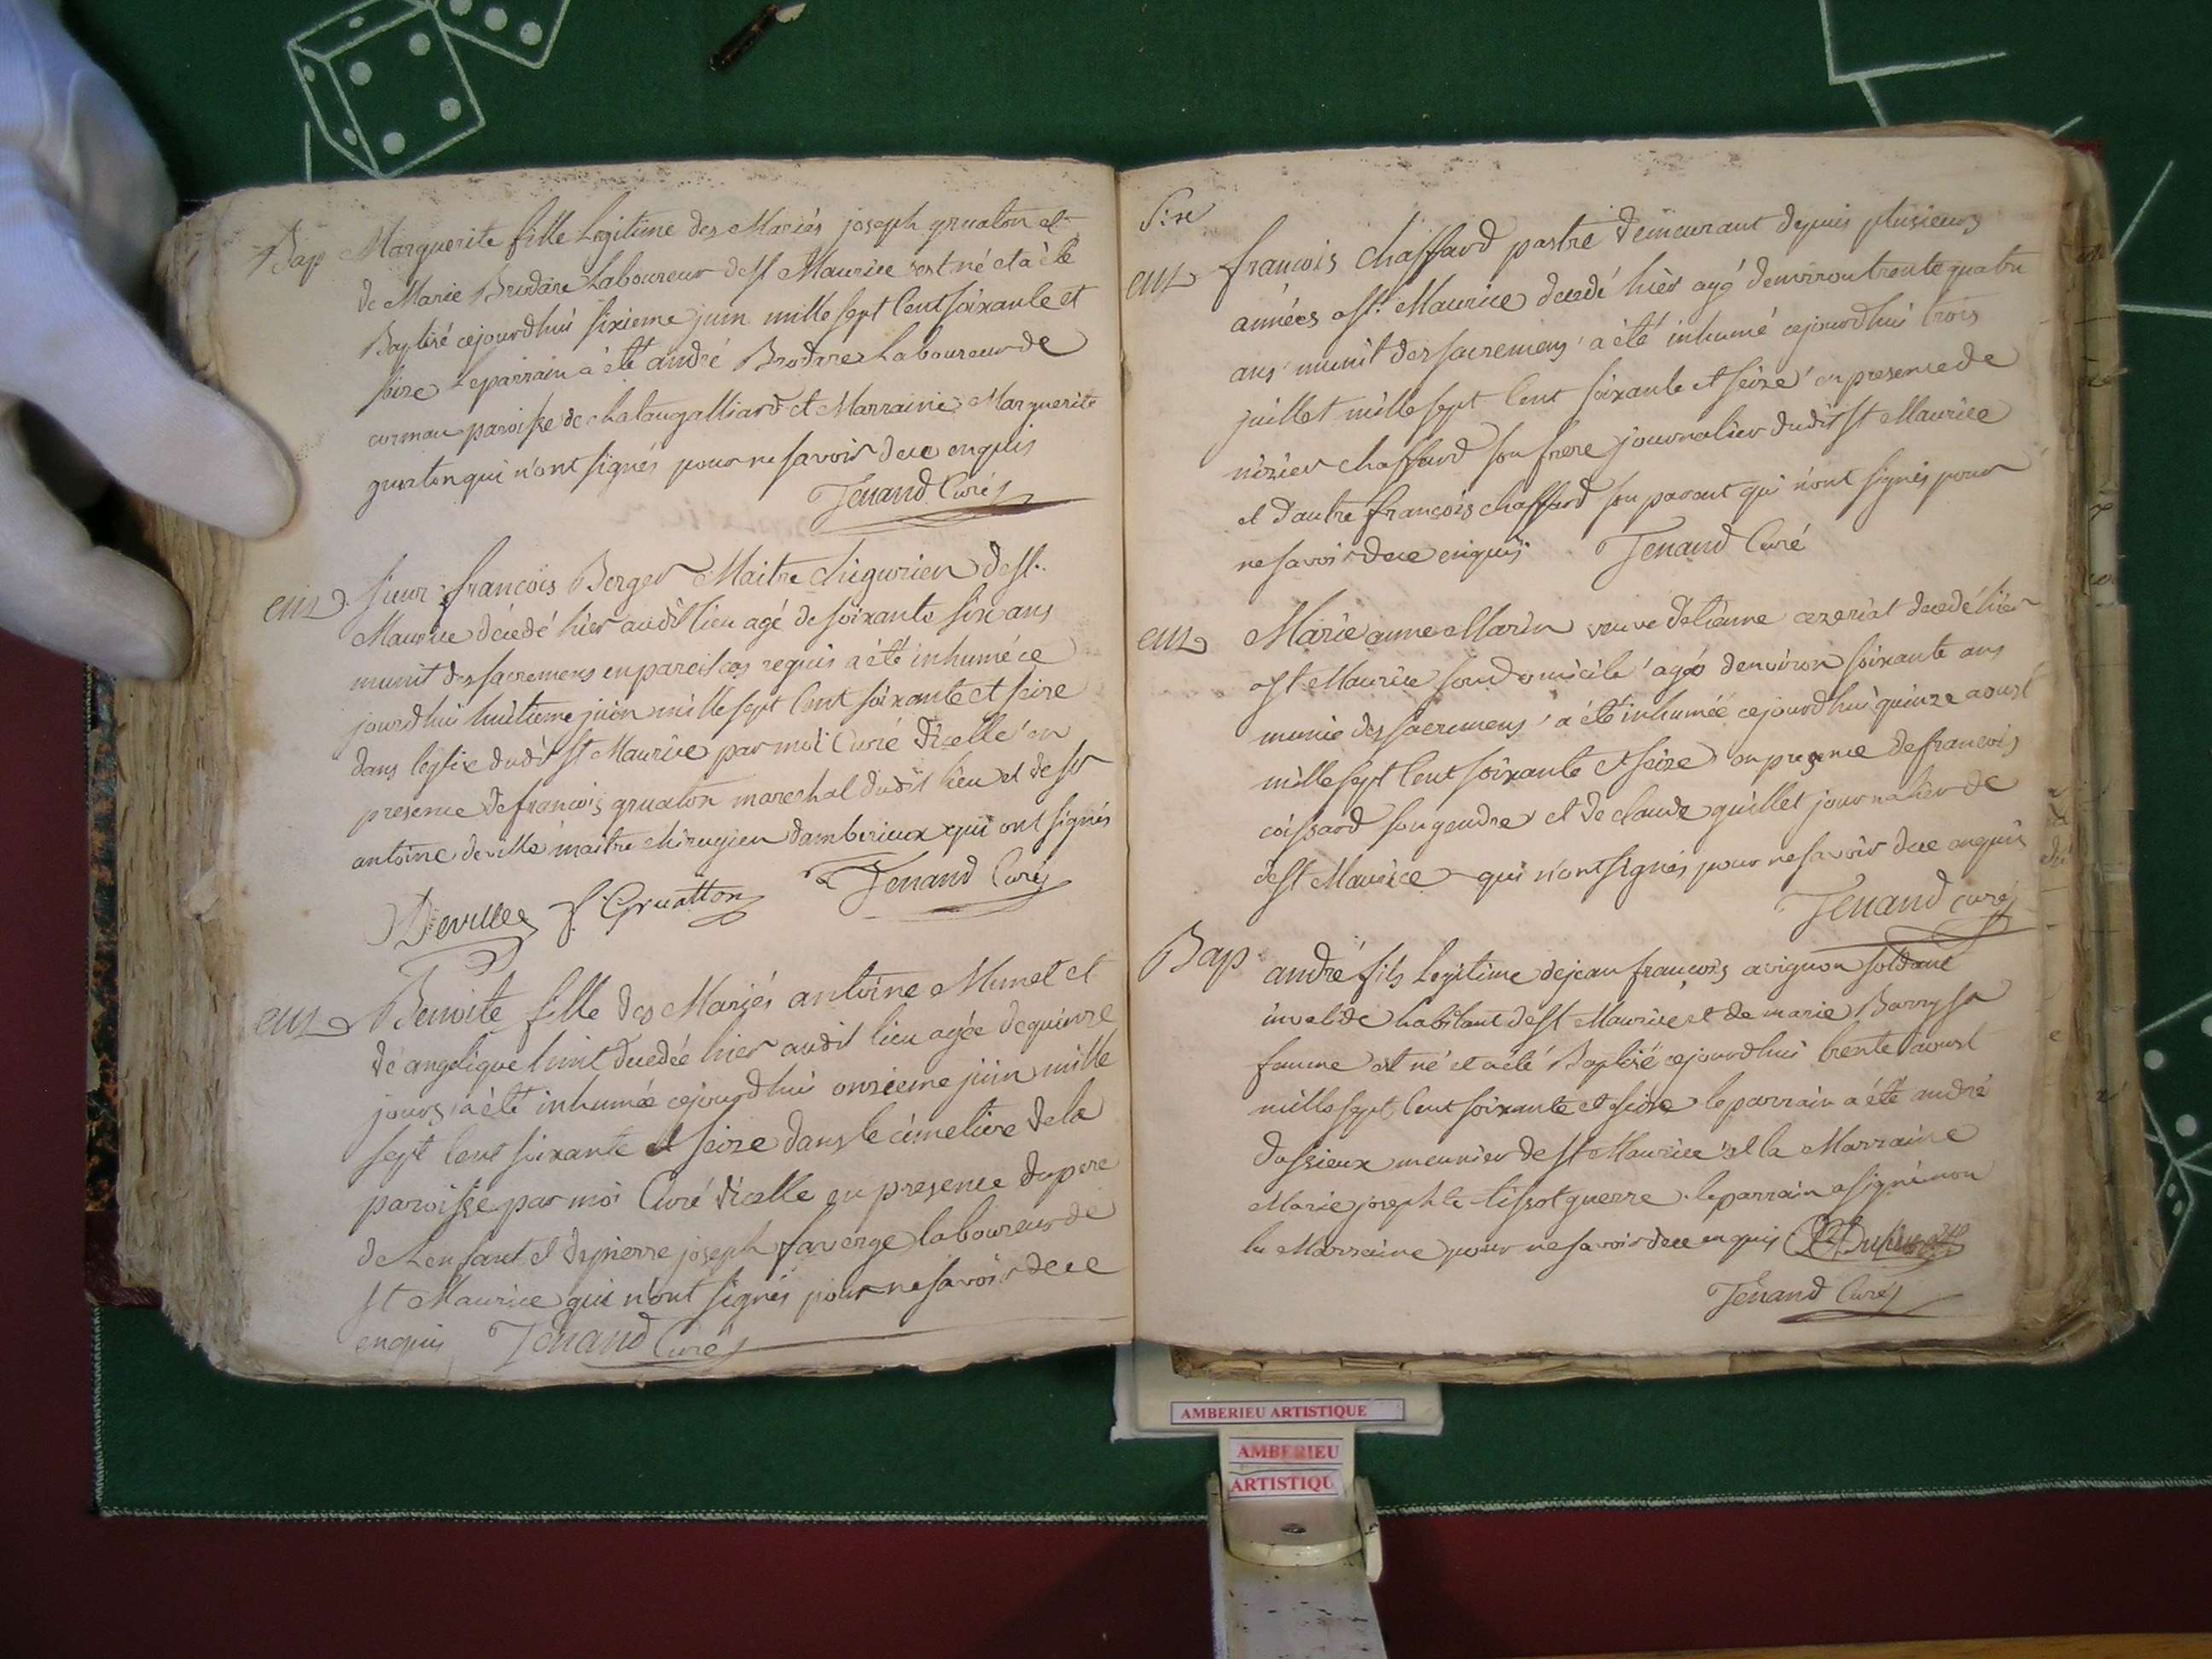 Bap Marguerite fille Legitime des Mariés joseph gruaton et
de Marie Brodane Laboureur de st Maurice est né et a été
Baptisé cejourdhui sixieme juin mille sept Cent soixante et
seize Le parrain a été andré Brodane Laboureur de
paroisse de chalaugalliard et Marraine Marguerite
qui n'ont signés pour ne savoir de ce enquis
Tenand Curé
ens Sieur francois Berger Maitre chigurien de st.
Maurice décédé hier audit lieu agé de soixante six ans
munit des sacremens en pareil cas requis a été inhumé ce
jourdhui huitieme juin mille sept Cent soixante et seize
dans léglise dudit st Maurice par moi Curé dicelle en
presence de francois gruaton mareshal dudit lieu et de sr
antoine deville maitre chirugien dambérieux qui ont signés
Deville f. Gruatton Tenand Curé
ens Benoite fille des Mariés antoine Munet et
de angelique decedée hier audit lieu agée de quinze
jours, a été inhumée cejourdhui onzieme juin mille
sept Cent soixante et seize dans le cimetiere de la
paroisse par moi Curé dicelle en presence du pere
de Lenfant et de pierre joseph faverge laboureur de
st Maurice qui n'ont signés pour ne savoir de ce
enquis Tenand Curé
Six
ens francois chaffard pastre demeurant depuis plusieurs
années a st. Maurice decedé hier agé denviron trente quatre
ans munit des sacremens a été inhumé cejourdhui trois
juillet mille sept Cent soixante et seize en presence de
nizier chaffard son frere journalier dudit st Maurice
et dautre francois chaffard son parent qui n'ont signés pour
ne savoir de ce enquis Tenand Curé
ens Marie anne Marin veuve détienne cezeriat decedé hier
a st Maurice son domicile agée denviron soixante ans
munie des sacremens a été inhumée cejourdhui quinze aoust
mille sept Cent soixante et seize en presence de francois
coissard son gendre et de claude quillet journalier de
de st Maurice qui n'ont signés pour ne savoir de ce enquis
Tenand curé
Bap andré fils Legitime de jean francois avignon soldant
invalide habitant de st Maurice et de marie Barry sa
femme est né et a été Baptisé cejourdhui trente aoust
mille sept Cent soixante et seize le parrain a été andré
dussieux meunier de st Maurice et la Marraine
Marie josephte tissot guerre. le parrain a signé non
la Marraine pour ne savoir de ce enquis
Tenand Curé
AMBERIEU ARTISTIQUE
AMBERIEU
ARTISTIQU